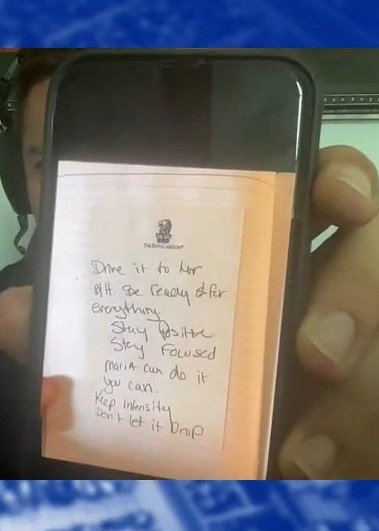 THE RITZ-CARLTON
Drive it to her
Be ready for
everything
Stay Positive
Stay Focused
Maria can do it
you can.
Keep Intensity
Don't let it Drop